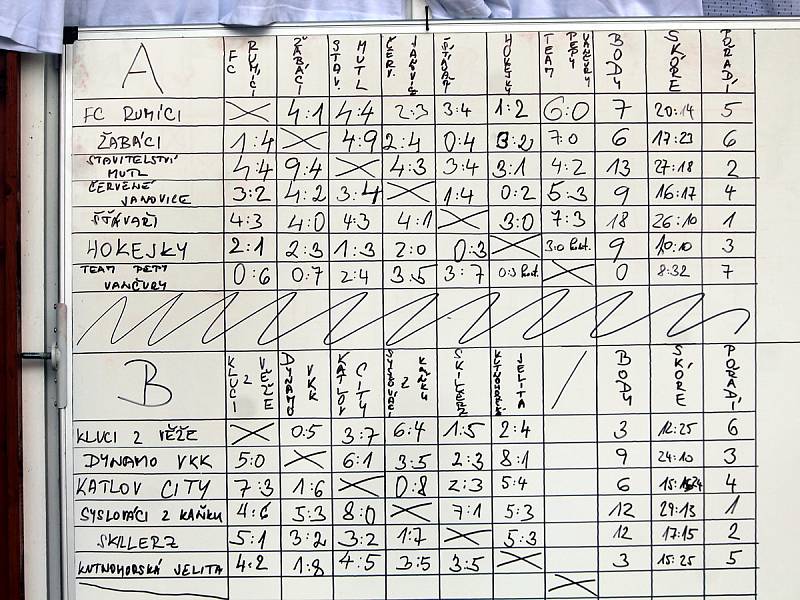 A FC RUMÍCI ŽABÁCI STAV. MUTL ČERV. JANOVICE ŠŤÁVAŘI HOKEJKY TEAM PEPY VANČURY BODY SKÓRE POŘADÍ
FC RUMÍCI 4:1 4:4 2:3 3:4 1:2 6:0 7 20:14 5
ŽABÁCI 1:4 4:9 2:4 0:4 3:2 7:0 6 17:23 6
STAVITELSTVÍ MUTL 4:4 9:4 4:3 3:4 3:1 4:2 13 27:18 2
ČERVENÉ JANOVICE 3:2 4:2 3:4 1:4 0:2 5:3 9 16:17 4
ŠŤÁVAŘI 4:3 4:0 4:3 4:1 3:0 7:3 18 26:10 1
HOKEJKY 2:1 2:3 1:3 2:0 0:3 3:0 kont. 9 10:10 3
TEAM PEPY VANČURY 0:6 0:7 2:4 3:5 3:7 0:3 kont. 0 8:32 7
B KLUCI Z VĚŽE DYNAMO VKK KATLOV CITY SYSLOVÁCI Z KAŇKU SKILLERZ KUTNOHORSKÁ JELITA BODY SKÓRE POŘADÍ
KLUCI Z VĚŽE 0:5 3:7 6:4 1:5 2:4 3 12:25 6
DYNAMO VKK 5:0 6:1 3:5 2:3 8:1 9 24:10 3
KATLOV CITY 7:3 1:6 0:8 2:3 5:4 6 15: 24 4
SYSLOVÁCI Z KAŇKU 4:6 5:3 8:0 7:1 5:3 12 29:13 1
SKILLERZ 5:1 3:2 3:2 1:7 5:3 12 17:15 2
KUTNOHORSKÁ JELITA 4:2 1:8 4:5 3:5 3:5 3 15:25 5